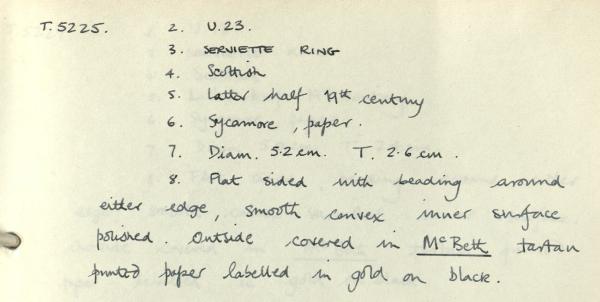 T.5225. 2. U.23.
3. SERVIETTE RING
4. Scottish
5. Latter half 19th century
6. Sycamore, paper.
7. Diam. 5.2 cm. T. 2.6 cm.
8. Flat sided with beading around
either edge, smooth convex inner surface
polished. Outside covered in McBeth tartan
printed paper labelled in gold on black.